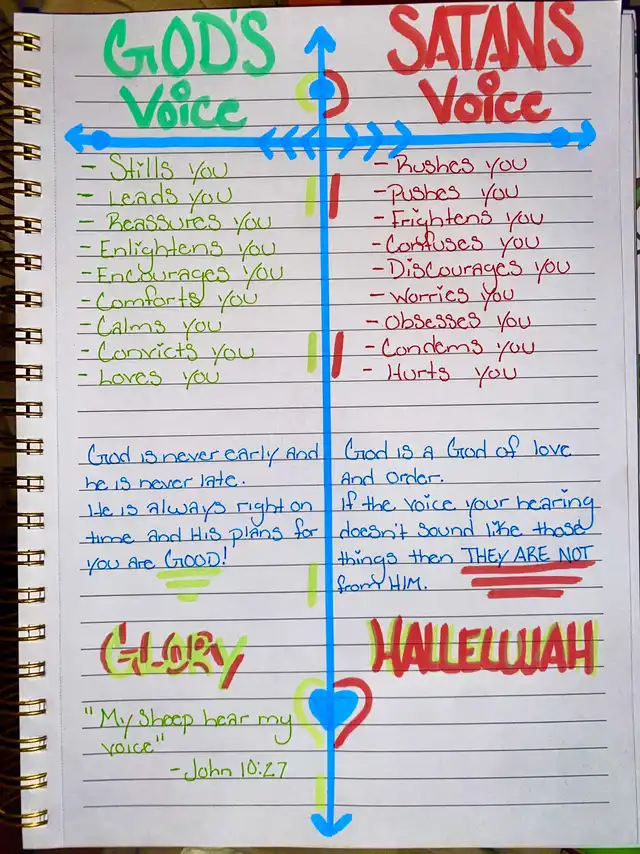 GOD'S
Voice
- Stills you
- Leads you
- Reassures you
- Enlightens you
- Encourages you
- Comforts you
- Calms you
- Convicts you
- Loves you
God is never early and
he is never late.
He is always right on
time and His plans for
you are GOOD!
GLORY
"My Sheep hear my
voice"
- John 10:27
SATANS
Voice
- Rushes you
- Pushes you
- Frightens you
- Confuses you
- Discourages you
- Worries you
- Obsesses you
- Condems you
- Hurts you
God is a God of love
and order.
If the voice your hearing
doesn't sound like those
things then THEY ARE NOT
from HIM.
HALLELUJAH